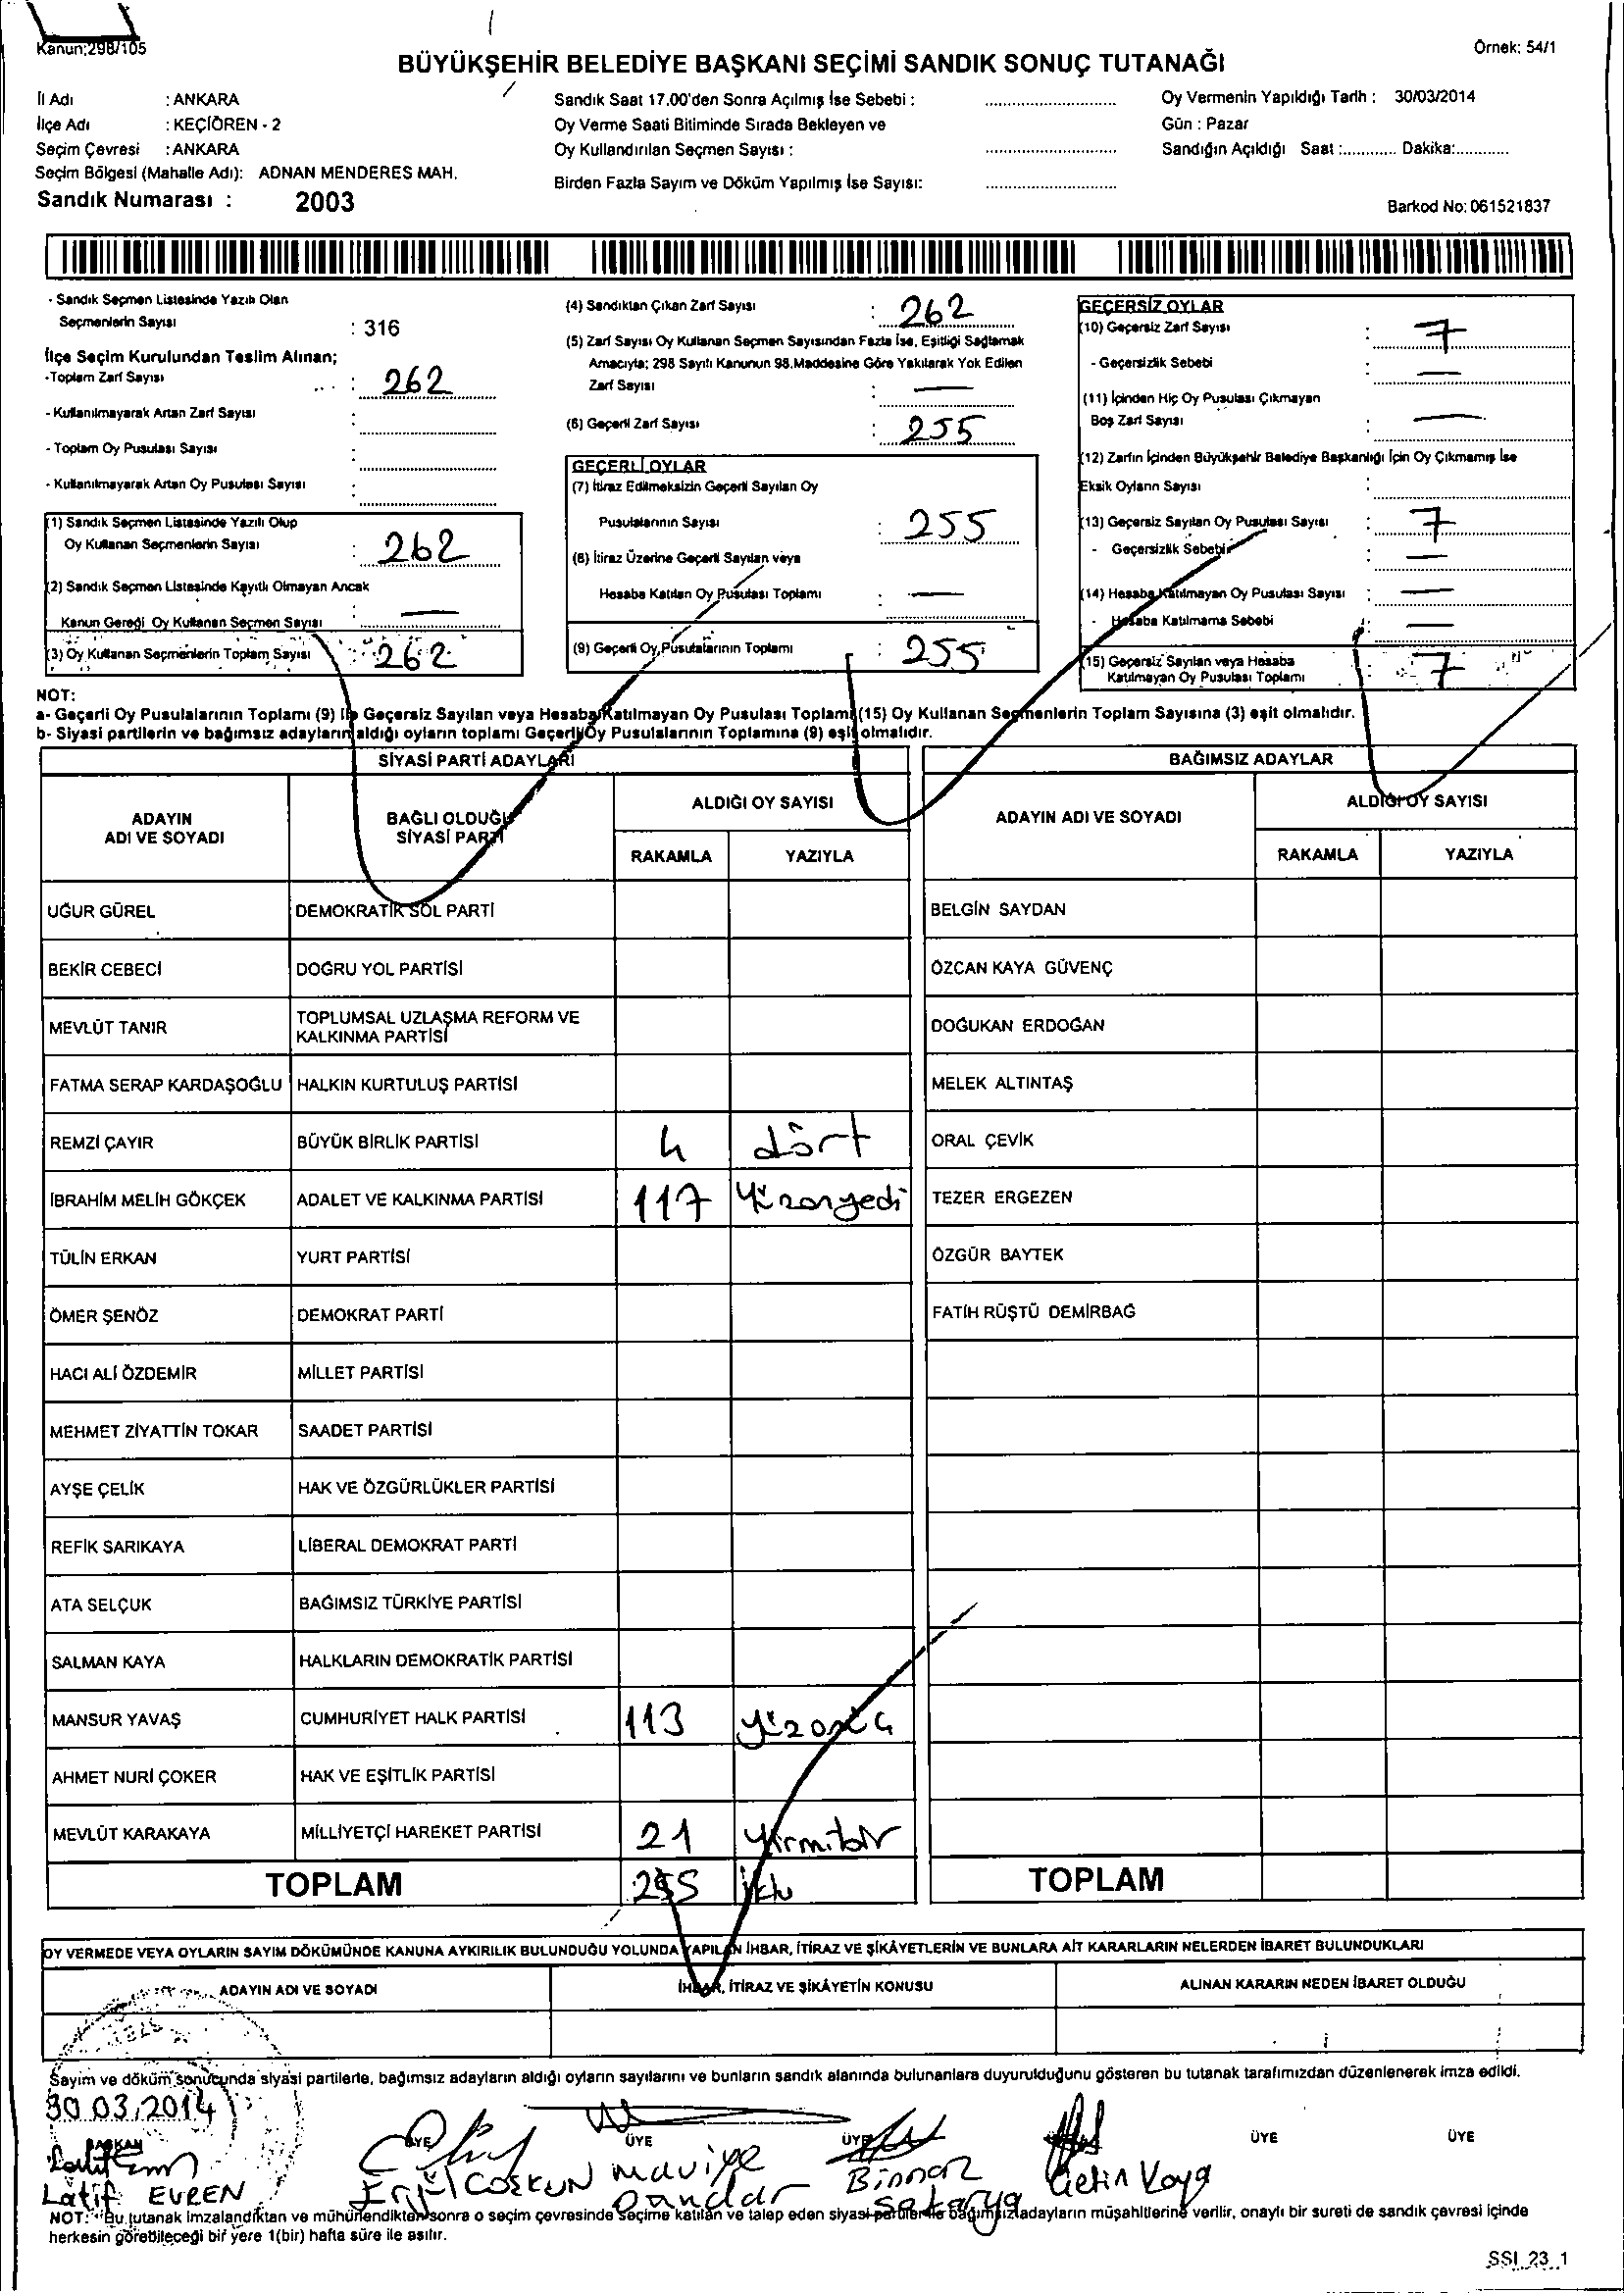 Kanun;298/105
Örnek: 54/1
BÜYÜKŞEHİR BELEDİYE BAŞKANI SEÇİMİ SANDIK SONUÇ TUTANAĞI
İl Adı : ANKARA
İlçe Adı : KEÇİÖREN - 2
Seçim Çevresi : ANKARA
Seçim Bölgesi (Mahalle Adı): ADNAN MENDERES MAH.
Sandık Numarası : 2003
Sandık Saat 17.00'den Sonra Açılmış İse Sebebi :
Oy Verme Saati Bitiminde Sırada Bekleyen ve
Oy Kullandırılan Seçmen Sayısı :
Birden Fazla Sayım ve Döküm Yapılmış İse Sayısı:
Oy Vermenin Yapıldığı Tarih : 30/03/2014
Gün : Pazar
Sandığın Açıldığı Saat :............ Dakika:............
Barkod No: 061521837
- Sandık Seçmen Listesinde Yazılı Olan
Seçmenlerin Sayısı : 316
İlçe Seçim Kurulundan Teslim Alınan;
-Toplam Zarf Sayısı : 262
- Kullanılmayarak Artan Zarf Sayısı :
- Toplam Oy Pusulası Sayısı :
- Kullanılmayarak Artan Oy Pusulası Sayısı :
(1) Sandık Seçmen Listesinde Yazılı Olup
Oy Kullanan Seçmenlerin Sayısı : 262
(2) Sandık Seçmen Listesinde Kayıtlı Olmayan Ancak
Kanun Gereği Oy Kullanan Seçmen Sayısı : —
(3) Oy Kullanan Seçmenlerin Toplam Sayısı : 262
(4) Sandıktan Çıkan Zarf Sayısı : 262
(5) Zarf Sayısı Oy Kullanan Seçmen Sayısından Fazla İse, Eşitliği Sağlamak
Amacıyla; 298 Sayılı Kanunun 98.Maddesine Göre Yakılarak Yok Edilen
Zarf Sayısı : —
(6) Geçerli Zarf Sayısı : 255
GEÇERLİ OYLAR
(7) İtiraz Edilmeksizin Geçerli Sayılan Oy
Pusulalarının Sayısı : 255
(8) İtiraz Üzerine Geçerli Sayılan veya
Hesaba Katılan Oy Pusulası Toplamı : —
(9) Geçerli Oy Pusulalarının Toplamı : 255
GEÇERSİZ OYLAR
(10) Geçersiz Zarf Sayısı : 7
- Geçersizlik Sebebi : —
(11) İçinden Hiç Oy Pusulası Çıkmayan
Boş Zarf Sayısı : —
(12) Zarfın İçinden Büyükşehir Belediye Başkanlığı İçin Oy Çıkmamış İse
Eksik Oyların Sayısı :
(13) Geçersiz Sayılan Oy Pusulası Sayısı : 7
- Geçersizlik Sebebi : —
(14) Hesaba Katılmayan Oy Pusulası Sayısı : —
- Hesaba Katılmama Sebebi —
(15) Geçersiz Sayılan veya Hesaba
Katılmayan Oy Pusulası Toplamı : 7
NOT:
a- Geçerli Oy Pusulalarının Toplamı (9) ile Geçersiz Sayılan veya Hesaba Katılmayan Oy Pusulası Toplamı (15) Oy Kullanan Seçmenlerin Toplam Sayısına (3) eşit olmalıdır.
b- Siyasi partilerin ve bağımsız adayların aldığı oyların toplamı Geçerli Oy Pusulalarının Toplamına (9) eşit olmalıdır.
SİYASİ PARTİ ADAYLARI
BAĞIMSIZ ADAYLAR
ADAYIN ADI VE SOYADI
BAĞLI OLDUĞU SİYASİ PARTİ
ALDIĞI OY SAYISI
RAKAMLA YAZIYLA
ADAYIN ADI VE SOYADI
ALDIĞI OY SAYISI
RAKAMLA YAZIYLA
UĞUR GÜREL DEMOKRATİK SOL PARTİ BELGİN SAYDAN
BEKİR CEBECİ DOĞRU YOL PARTİSİ ÖZCAN KAYA GÜVENÇ
MEVLÜT TANIR TOPLUMSAL UZLAŞMA REFORM VE KALKINMA PARTİSİ DOĞUKAN ERDOĞAN
FATMA SERAP KARDAŞOĞLU HALKIN KURTULUŞ PARTİSİ MELEK ALTINTAŞ
REMZİ ÇAYIR BÜYÜK BİRLİK PARTİSİ 4 dört ORAL ÇEVİK
İBRAHİM MELİH GÖKÇEK ADALET VE KALKINMA PARTİSİ 117 Yüzonyedi TEZER ERGEZEN
TÜLİN ERKAN YURT PARTİSİ ÖZGÜR BAYTEK
ÖMER ŞENÖZ DEMOKRAT PARTİ FATİH RÜŞTÜ DEMİRBAĞ
HACI ALİ ÖZDEMİR MİLLET PARTİSİ
MEHMET ZİYATTİN TOKAR SAADET PARTİSİ
AYŞE ÇELİK HAK VE ÖZGÜRLÜKLER PARTİSİ
REFİK SARIKAYA LİBERAL DEMOKRAT PARTİ
ATA SELÇUK BAĞIMSIZ TÜRKİYE PARTİSİ
SALMAN KAYA HALKLARIN DEMOKRATİK PARTİSİ
MANSUR YAVAŞ CUMHURİYET HALK PARTİSİ 113 yüzonüç
AHMET NURİ ÇOKER HAK VE EŞİTLİK PARTİSİ
MEVLÜT KARAKAYA MİLLİYETÇİ HAREKET PARTİSİ 21 Yirmibir
TOPLAM 255 TOPLAM
OY VERMEDE VEYA OYLARIN SAYIM DÖKÜMÜNDE KANUNA AYKIRILIK BULUNDUĞU YOLUNDA YAPILAN İHBAR, İTİRAZ VE ŞİKÂYETLERİN VE BUNLARA AİT KARARLARIN NELERDEN İBARET BULUNDUKLARI
ADAYIN ADI VE SOYADI İHBAR, İTİRAZ VE ŞİKÂYETİN KONUSU ALINAN KARARIN NEDEN İBARET OLDUĞU
Sayim ve döküm sonucunda siyasi partilerle, bağımsız adayların aldığı oyların sayılarını ve bunların sandık alanında bulunanlara duyurulduğunu gösteren bu tutanak tarafımızdan düzenlenerek imza edildi.
30.03.2014
BAŞKAN ÜYE ÜYE ÜYE ÜYE ÜYE
Latif EVREN COŞKUN Maviye Binnaz Sakarya Çetin Kaya
NOT: Bu tutanak imzalandıktan ve mühürlendikten sonra o seçim çevresinde seçime katılan ve talep eden siyasi partilerle bağımsız adayların müşahitlerine verilir, onaylı bir sureti de sandık çevresi içinde
herkesin görebileceği bir yere 1(bir) hafta süre ile asılır.
SSI_23_1